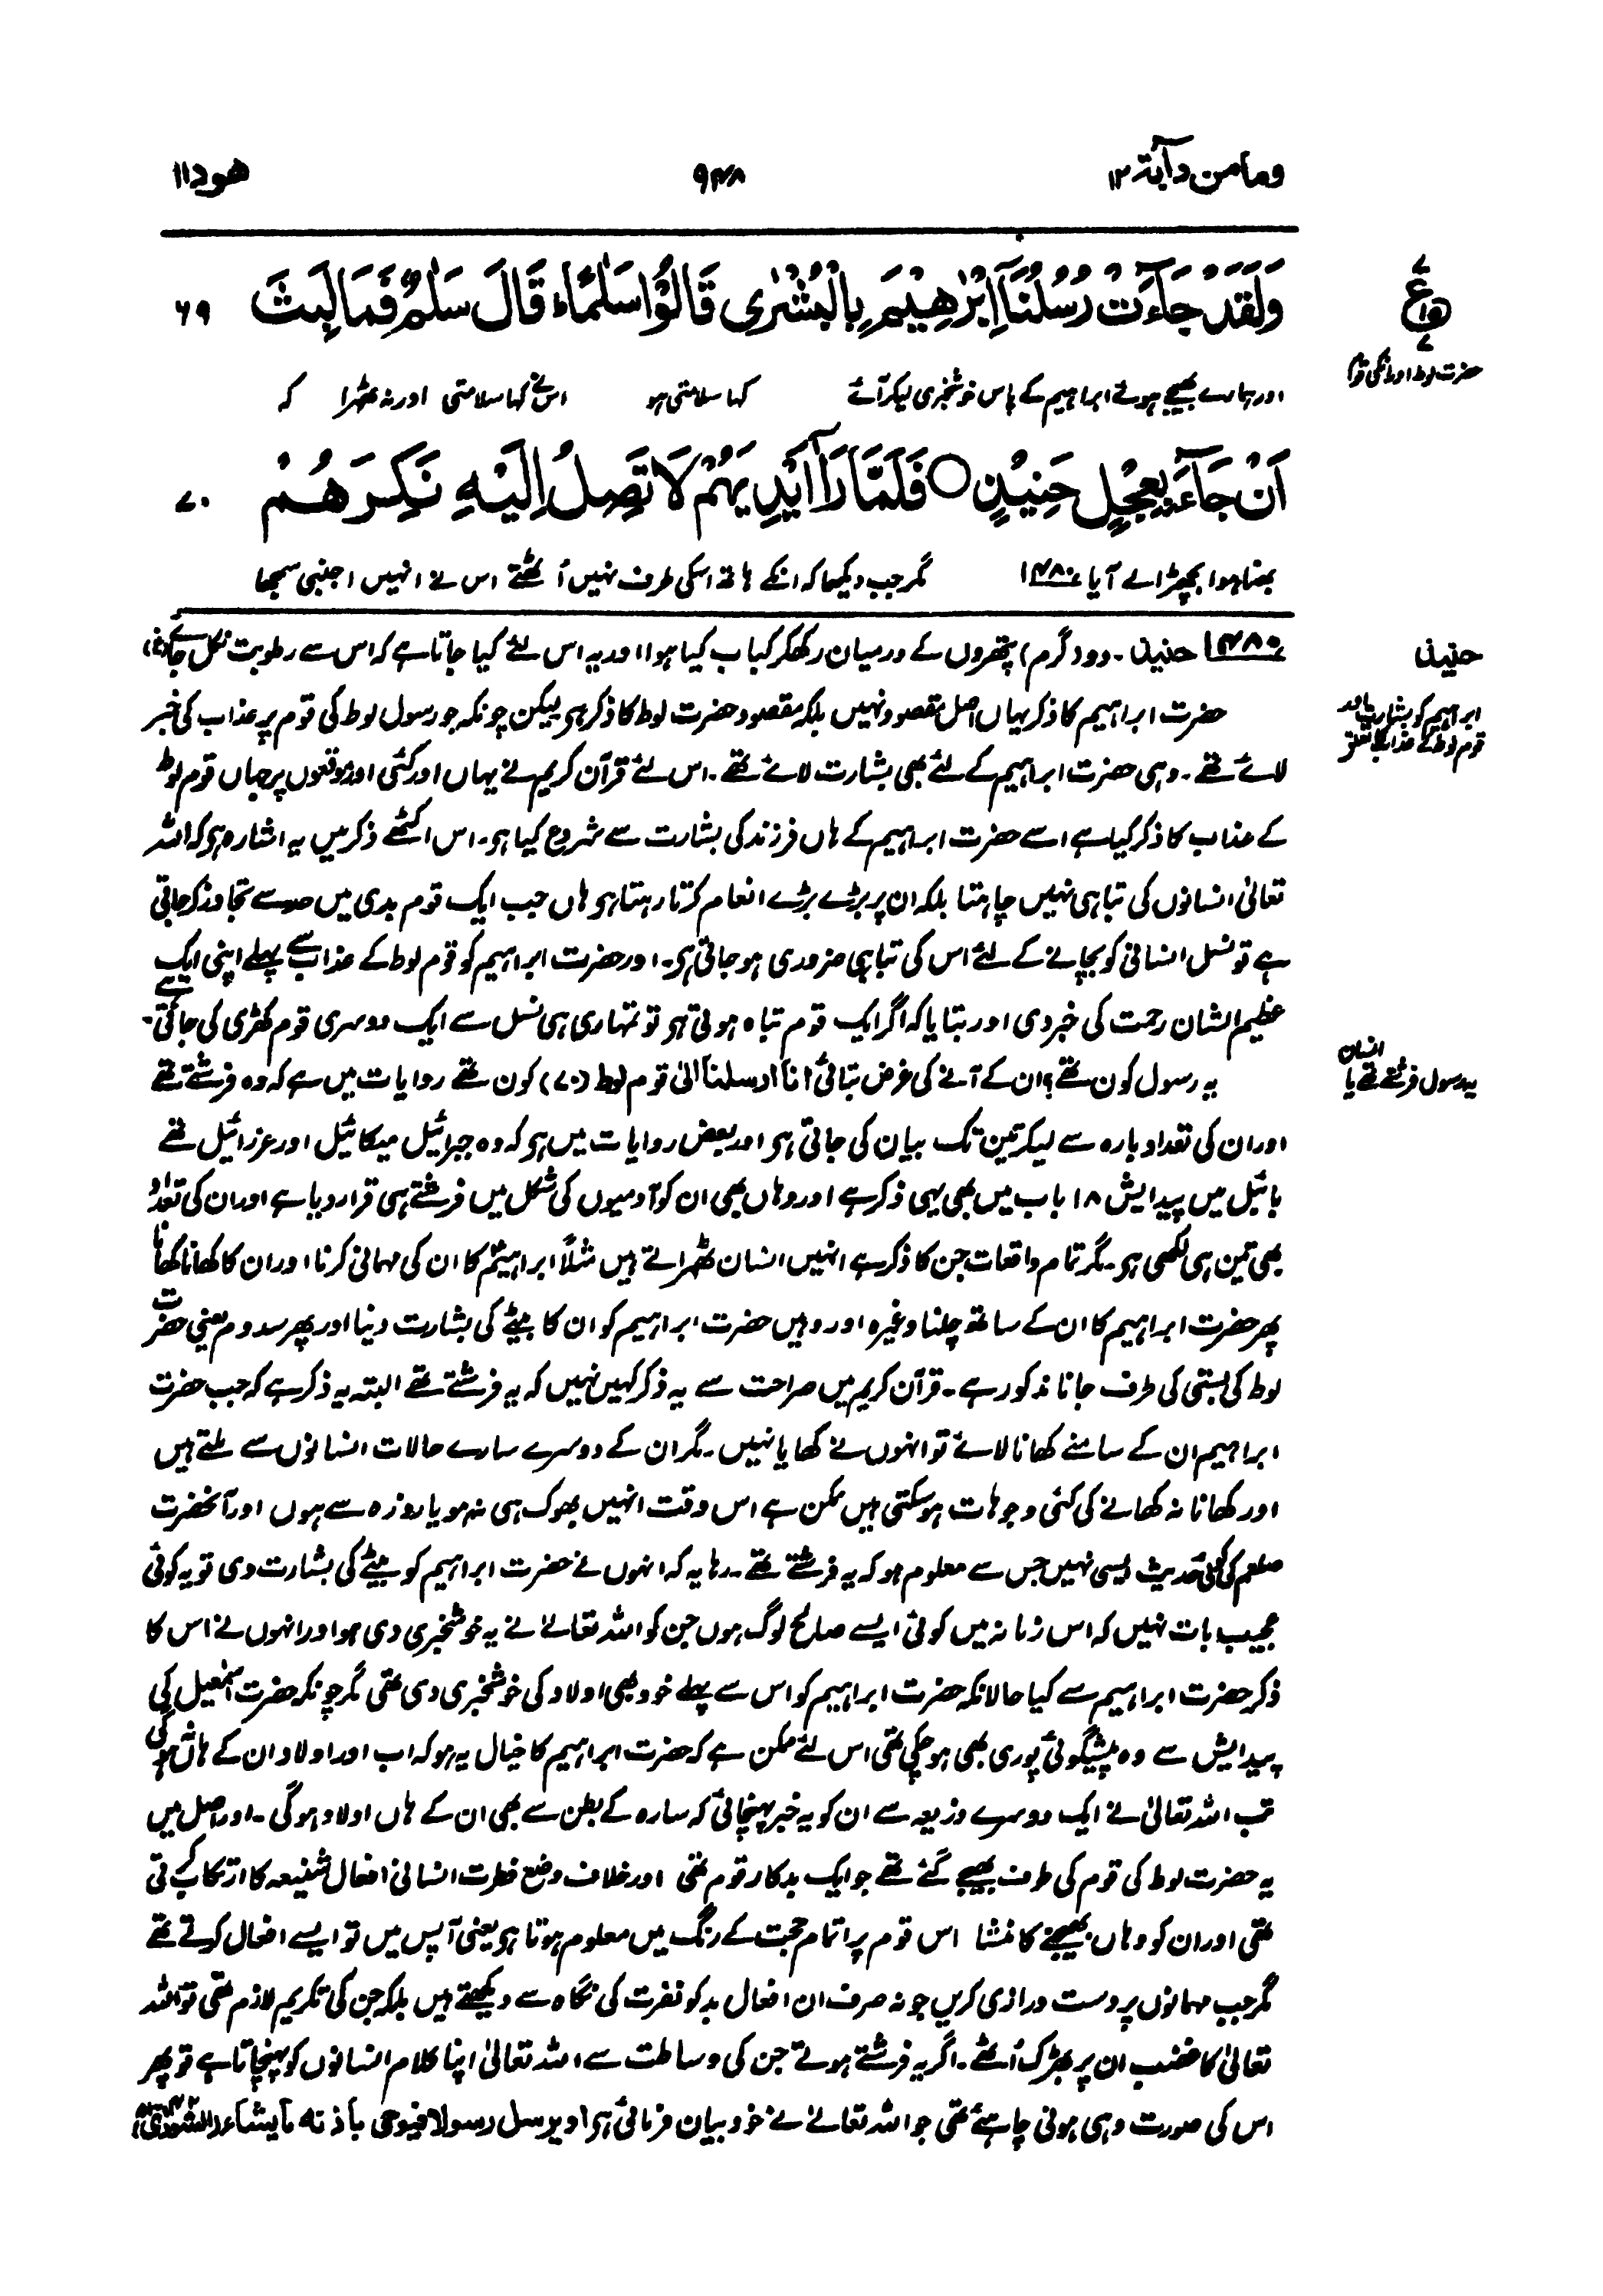 ومامن دآبۃ ۱۲
۹۴۸
ھود ۱۱
وَلَقَدْ جَآءَتْ رُسُلُنَآ اِبْرٰهِيْمَ بِالْبُشْرٰى قَالُوْا سَلٰمًا ؕ قَالَ سَلٰمٌ فَمَا لَبِثَ ۶۹
ع
حضرت لوط اور انکی قوم
اور ہمارے بھیجے ہوئے ابراہیم کے پاس خوشخبری لیکر آئے کہا سلامتی ہو اس نے کہا سلامتی اور نہ ٹھہرا کہ
اَنْ جَآءَ بِعِجْلٍ حَنِيْذٍ ○ فَلَمَّا رَاٰۤ اَيْدِيَهُمْ لَا تَصِلُ اِلَيْهِ نَكِرَهُمْ ۷۰
بھنا ہوا بچھڑا لے آیا ۱۴۸۰ مگر جب دیکھا کہ انکے ہاتھ اسکی طرف نہیں اُٹھتے اس نے انہیں اجنبی سمجھا
حنیذ
۱۴۸۰ حنیذ۔ دو (گرم) پتھروں کے درمیان رکھکر کباب کیا ہوا اور یہ اس لئے کیا جاتا ہے کہ اس سے رطوبت نکل جائے (غ)
ابراہیم کو بشارت اور
قوم لوط کے عذاب کا تعلق
حضرت ابراہیم کا ذکر یہاں اصل مقصود نہیں بلکہ مقصود حضرت لوط کا ذکر ہی لیکن چونکہ جو رسول لوط کی قوم پر عذاب کی خبر
لائے تھے۔ وہی حضرت ابراہیم کے لئے بھی بشارت لائے تھے۔ اس لئے قرآن کریم نے یہاں اور کئی اور موقعوں پر جہاں قوم لوط
کے عذاب کا ذکر کیا ہے اسے حضرت ابراہیم کے ہاں فرزند کی بشارت سے شروع کیا ہو۔ اس اکٹھے ذکر میں یہ اشارہ ہو کہ اللہ
تعالیٰ انسانوں کی تباہی نہیں چاہتا بلکہ ان پر بڑے بڑے انعام کرتا رہتا ہو ہاں جب ایک قوم بدی میں حد سے تجاوز کر جاتی
ہے تو نسل انسانی کو بچانے کے لئے اس کی تباہی ضروری ہو جاتی ہو۔ اور حضرت ابراہیم کو قوم لوط کے عذاب سے پہلے اپنی ایک
عظیم الشان رحمت کی خبر دی اور بتایا کہ اگر ایک قوم تباہ ہوتی ہو تو تمہاری ہی نسل سے ایک دوسری قوم کھڑی کی جائے گی۔
یہ رسول فرشتے تھے یا انسان
یہ رسول کون تھے؟ ان کے آنے کی غرض بتائی انا ارسلنا الیٰ قوم لوط (۷۰) کون تھے روایات میں ہے کہ وہ فرشتے تھے
اور ان کی تعداد بارہ سے لیکر تین تک بیان کی جاتی ہو اور بعض روایات میں ہو کہ وہ جبرائیل میکائیل اور عزرائیل تھے
بائبل میں پیدایش ۱۸ باب میں بھی یہی ذکر ہے اور وہاں بھی ان کو آدمیوں کی شکل میں فرشتے ہی قرار دیا ہے اور ان کی تعداد
بھی تین ہی لکھی ہو۔ مگر تمام واقعات جن کا ذکر ہے انہیں انسان ٹھہراتے ہیں مثلاً ابراہیم کا ان کی مہمانی کرنا اور ان کا کھانا کھانا
پھر حضرت ابراہیم کا ان کے ساتھ چلنا وغیرہ اور وہیں حضرت ابراہیم کو ان کا بیٹے کی بشارت دینا اور پھر سدوم یعنی حضرت
لوط کی بستی کی طرف جانا مذکور ہے۔ قرآن کریم میں صراحت سے یہ ذکر کہیں نہیں کہ یہ فرشتے تھے البتہ یہ ذکر ہے کہ جب حضرت
ابراہیم ان کے سامنے کھانا لائے تو انہوں نے کھایا نہیں۔ مگر ان کے دوسرے سارے حالات انسانوں سے ملتے ہیں
اور کھانا نہ کھانے کی کئی وجوہات ہو سکتی ہیں ممکن ہے اس وقت انہیں بھوک ہی نہ ہو یا روزہ سے ہوں اور آنحضرت
صلعم کی کوئی حدیث ایسی نہیں جس سے معلوم ہو کہ یہ فرشتے تھے۔ رہا یہ کہ انہوں نے حضرت ابراہیم کو بیٹے کی بشارت دی تو یہ کوئی
عجیب بات نہیں کہ اس زمانہ میں کوئی ایسے صالح لوگ ہوں جن کو اللہ تعالےٰ نے یہ خوشخبری دی ہو اور انہوں نے اس کا
ذکر حضرت ابراہیم سے کیا حالانکہ حضرت ابراہیم کو اس سے پہلے خود بھی اولاد کی خوشخبری دی تھی مگر چونکہ حضرت اسمٰعیل کی
پیدایش سے وہ پیشگوئی پوری بھی ہو چکی تھی اس لئے ممکن ہے کہ حضرت ابراہیم کا خیال یہ ہو کہ اب اور اولاد ان کے ہاں نہ ہوگی
تب اللہ تعالیٰ نے ایک دوسرے ذریعہ سے ان کو یہ خبر پہنچائی کہ سارہ کے بطن سے بھی ان کے ہاں اولاد ہوگی۔ اور اصل میں
یہ حضرت لوط کی قوم کی طرف بھیجے گئے تھے جو ایک بدکار قوم تھی اور خلاف وضع فطرت انسانی افعال شنیعہ کا ارتکاب کرتی
تھی اور ان کو وہاں بھیجنے کا منشا اس قوم پر اتمام حجت کے رنگ میں معلوم ہوتا ہو یعنی آپس میں تو ایسے افعال کرتے تھے
مگر جب مہمانوں پر دست درازی کریں جو نہ صرف ان افعال بد کو نفرت کی نگاہ سے دیکھتے ہیں بلکہ جن کی تکریم لازم تھی تو اللہ
تعالیٰ کا غضب ان پر بھڑک اُٹھے۔ اگر یہ فرشتے ہوتے جن کی وساطت سے اللہ تعالیٰ اپنا کلام انسانوں کو پہنچاتا ہے تو پھر
اس کی صورت وہی ہونی چاہئے تھی جو اللہ تعالےٰ نے خود بیان فرمائی ہو او یرسل رسولا فیوحی باذنہ ما یشآء (الشوریٰ